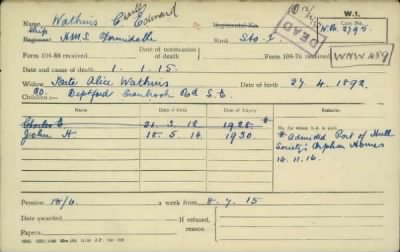 Name Watkins C Edward W.1.
Ship HMS Formidable Rank Sto. I DEAD Case No.
Regiment Regimental No. W.N. 2795
Date of notification of death WNW 489
Form 104-88 received Form 104-76 received
Date and cause of death 1-1-15.
Widow Kate Alice Watkins Date of birth 27.4.1892.
Children
20. Deptford Cranbrook Rd S.E.
Name Date of birth Date of expiry
Charles E 21.3.12 1928 *
John H. 18.5.14 1930
No. for whom S.A. is paid
* Admitted Port of Hull Society's Orphan Homes 14.11.16.
Pension 18/6. a week from 8.7.15
Date awarded If refused, reason
Payments